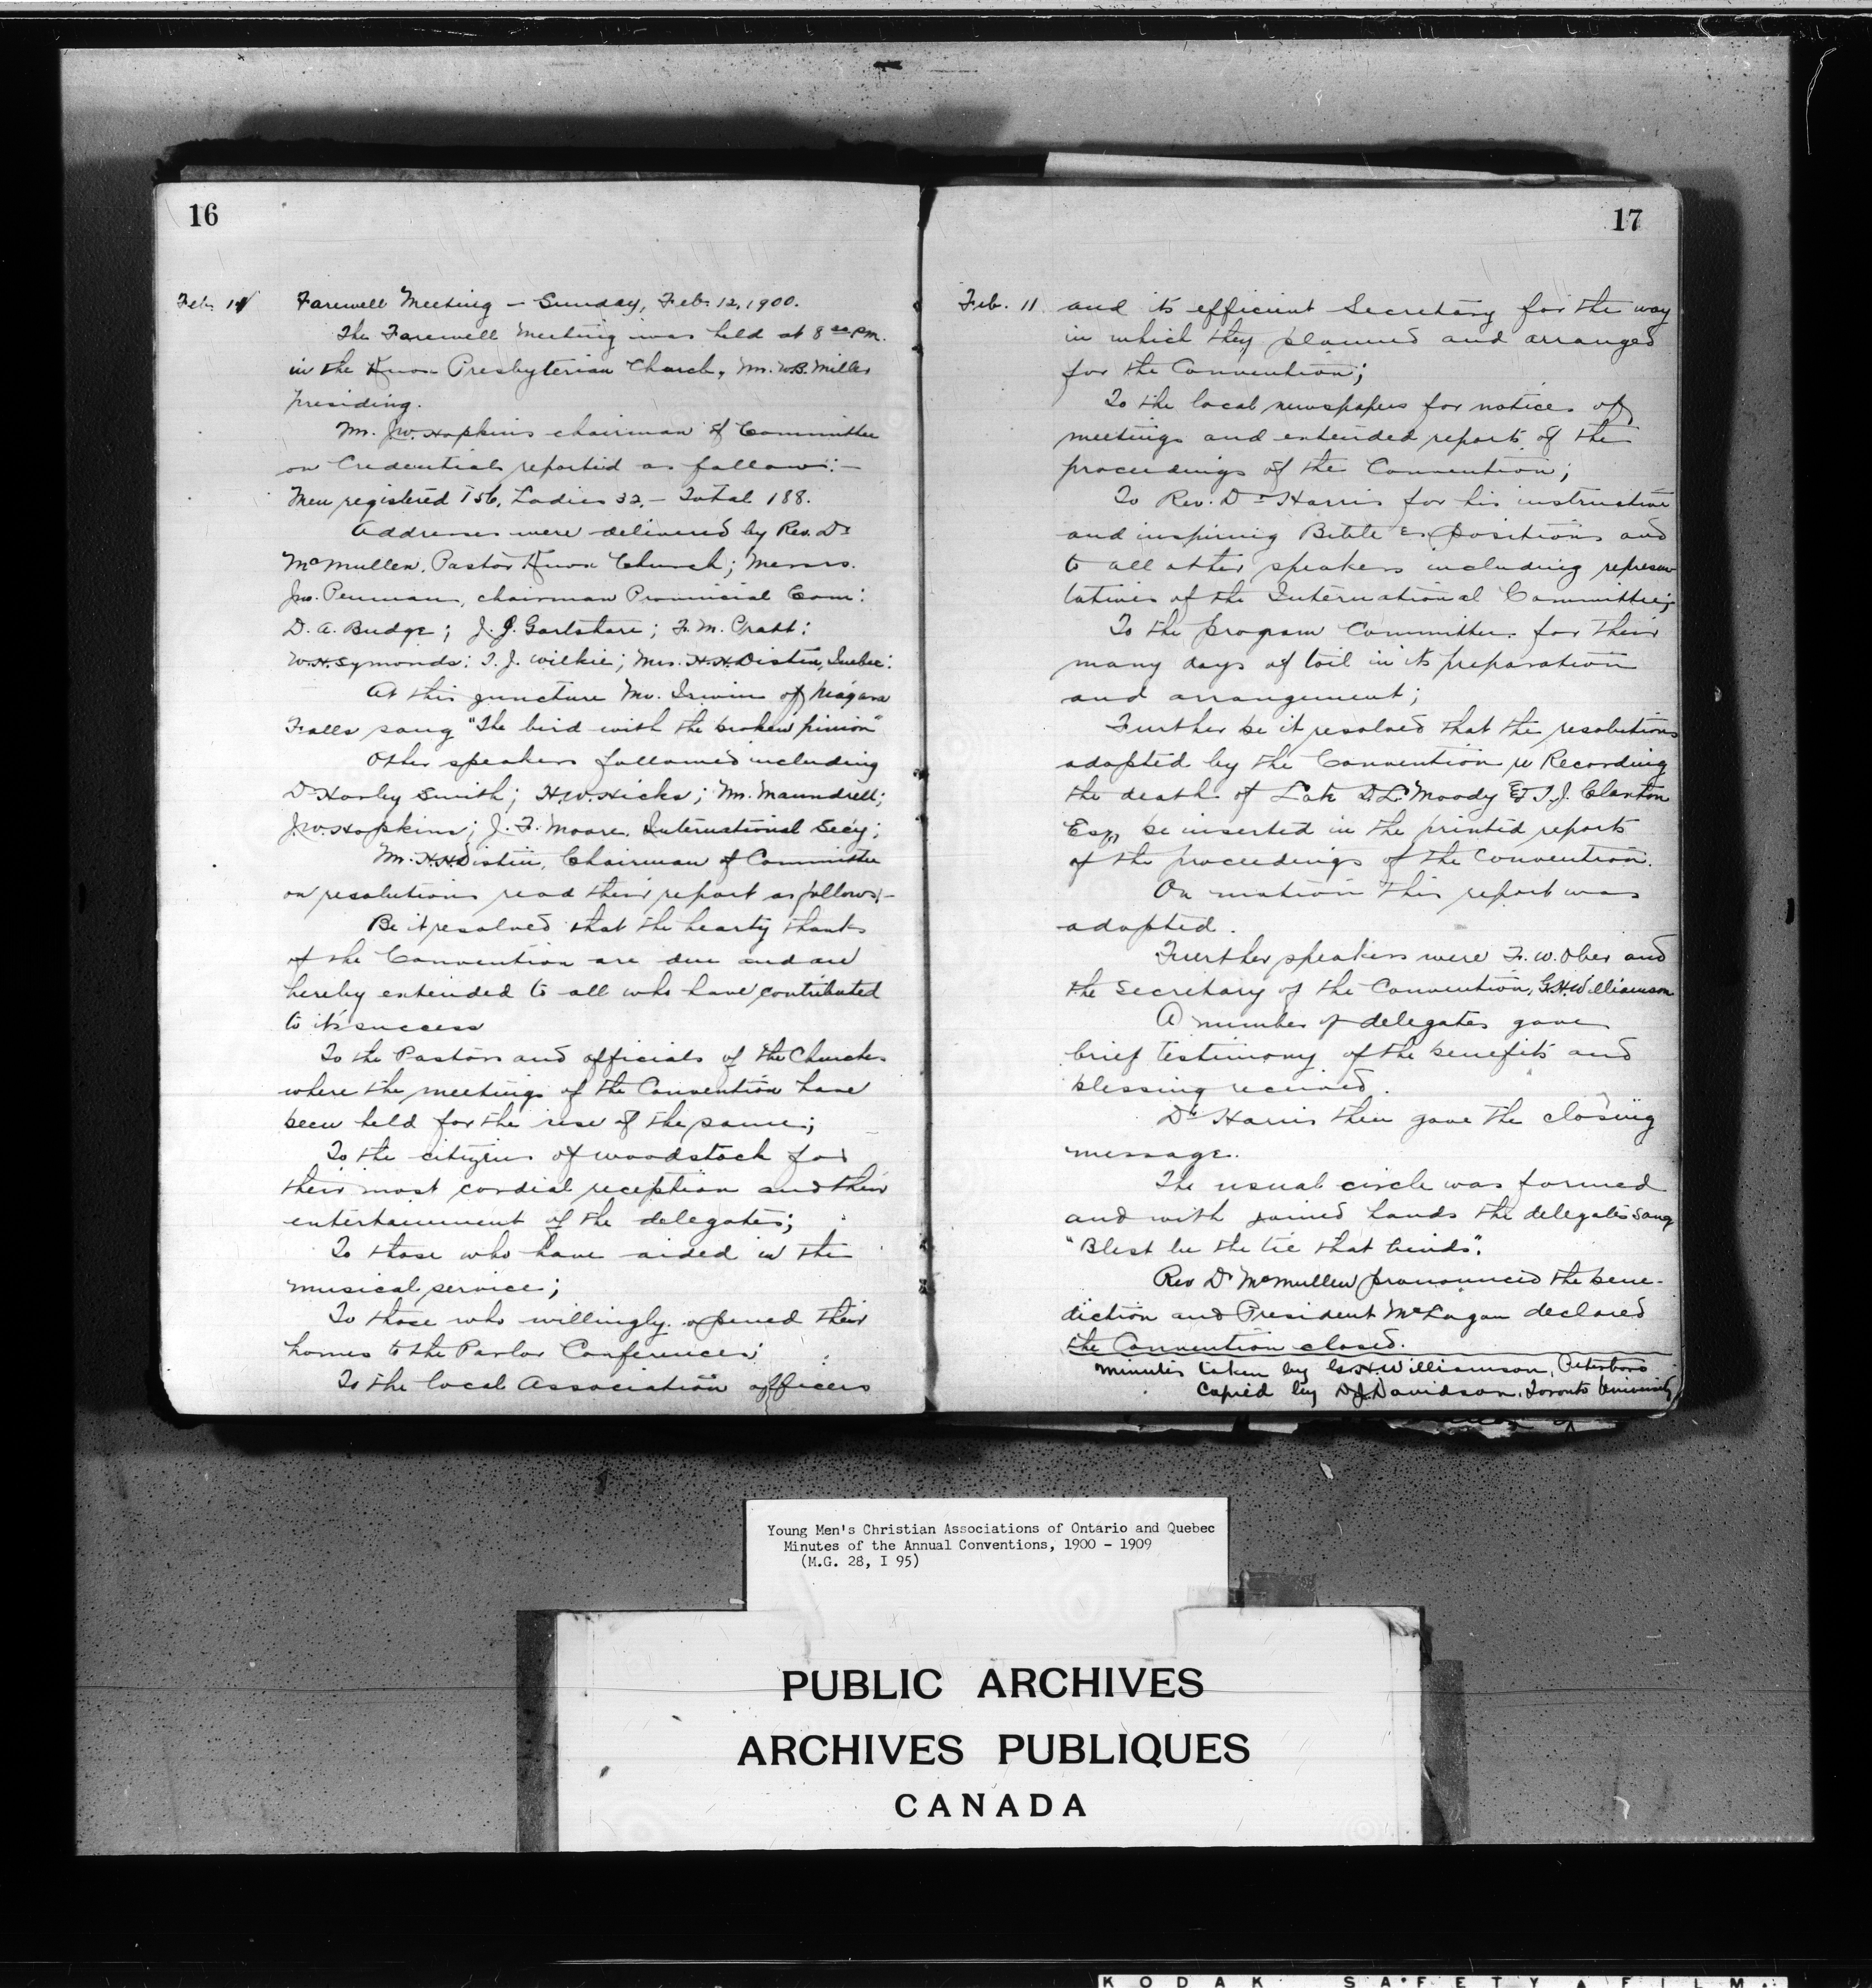 16
Feb. 11
Farewell Meeting – Sunday, Feb. 12, 1900.
The Farewell Meeting was held at 8 P.M.
in the Knox Presbyterian Church, Mr. W.B. Miller
presiding.
Mr. J.W. Hopkins chairman of Committee
on Credentials reported as follows:–
Men registered 156, Ladies 32, – Total 188.
Addresses were delivered by Rev. Dr
McMullen, Pastor Knox Church; Messrs.
Jno. Penman, chairman Provincial Com:
D. A. Budge; J. J. Gartshore; F. M. Pratt:
W.H. Symonds; T. J. Wilkie; Mrs. H.H. Distin, Quebec:
At this juncture Mr. Irwin of Niagara
Falls sang "The bird with the broken pinion"
Other speakers followed including
Dr Harley Smith; H.W. Hicks; Mr. Maundrell;
J.W. Hopkins; J. F. Moore, International Secy;
Mr. H.H. Distin, Chairman of Committee
on resolutions read their report as follows:–
Be it resolved that the hearty thanks
of the Convention are due and are
hereby extended to all who have contributed
to its success
To the Pastors and officials of the Churches
where the meetings of the Convention have
been held for the use of the same;
To the citizens of Woodstock for
their most cordial reception and their
entertainment of the delegates;
To those who have aided in the
musical service;
To those who willingly opened their
homes to the Parlor Conferences;
To the local Association officers
17
Feb. 11
and its efficient Secretary for the way
in which they planned and arranged
for the Convention;
To the local newspapers for notices of
meetings and extended reports of the
proceedings of the Convention;
To Rev. Dr Harris for his instructive
and inspiring Bible Expositions and
to all other speakers including represen
tatives of the International Committee;
To the program Committee for their
many days of toil in its preparation
and arrangement;
Further be it resolved that the resolutions
adopted by the Convention re Recording
the death of Late D.L. Moody & T.J. Claxton
Esq., be inserted in the printed reports
of the proceedings of the Convention.
On motion this report was
adopted.
Further speakers were F. W. Ober and
the Secretary of the Convention, G.H. Williamson
A number of delegates gave
brief testimony of the benefits and
blessing received.
Dr Harris then gave the closing
message.
The usual circle was formed
and with joined hands the delegates sang
"Blest be the tie that binds".
Rev Dr McMullen pronounced the bene-
diction and President McLagan declared
the Convention closed.
Minutes taken by G.H. Williamson, Peterboro
Copied by D.J. Davidson, Toronto University
Young Men's Christian Associations of Ontario and Quebec
Minutes of the Annual Conventions, 1900 - 1909
(M.G. 28, I 95)
PUBLIC ARCHIVES
ARCHIVES PUBLIQUES
CANADA
KODAK SAFETY FILM